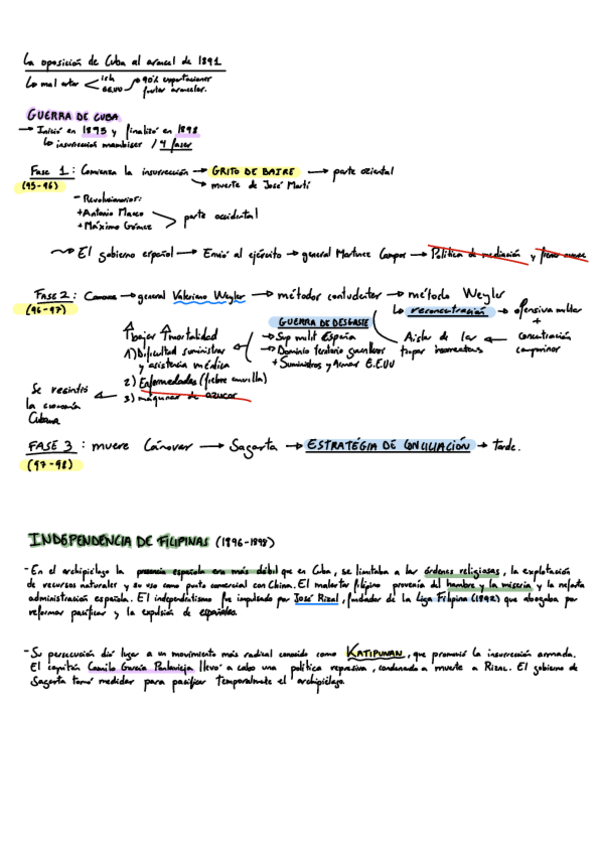 La oposición de Cuba al arancel de 1891
Lo mal estar
ish
EEUU → 90% exportaciones
frutar arancelar.
GUERRA DE CUBA
→ Inició en 1895 y finalizó en 1898
↳ insurrección mambises / 4 fases
Fase 1: Comienza la insurrección → GRITO DE BAIRE → parte oriental
(95-96)
→ muerte de José Martí
- Revolucionarios:
+ Antonio Maceo
+ Máximo Gómez
parte occidental
El gobierno español → Envió al ejército → general Martínez Campos → Política de mediación y
FASE 2: → general Valeriano Weyler → métodos contundentes → método Weyler
(96-97)
↳ reconcentración → ofensiva militar
+
concentración
campesinos
Aislar de las
tropas
GUERRA DE DESGASTE
→ Sup milit España
→ Dominio territorio guerrillero
+ Suministros y Armas E.EUU
↑ bajas ↑ mortalidad
1) Dificultad suministrar
y asistencia médica
2) Enfermedades (fiebre amarilla)
3) máquinas de azúcar
Se resintió
la economía
Cubana
FASE 3: muere Cánovas → Sagasta → ESTRATEGIA DE CONCILIACIÓN → tarde.
(97-98)
INDEPENDENCIA DE FILIPINAS (1896-1898)
- En el archipiélago la presencia española era más débil que en Cuba, se limitaba a las órdenes religiosas, la explotación
de recursos naturales y su uso como punto comercial con China. El malestar filipino provenía del hambre y la miseria y la nefasta
administración española. El independentismo fue impulsado por José Rizal, fundador de la Liga Filipina (1892) que abogaba por
reformas pacificar y la expulsión de españoles.
- Su persecución dio lugar a un movimiento más radical conocido como KATIPUNAN, que promovió la insurrección armada.
El capitán Camilo García Polavieja llevó a cabo una política represiva, condenando a muerte a Rizal. El gobierno de
Sagasta tomó medidas para pacificar temporalmente el archipiélago.